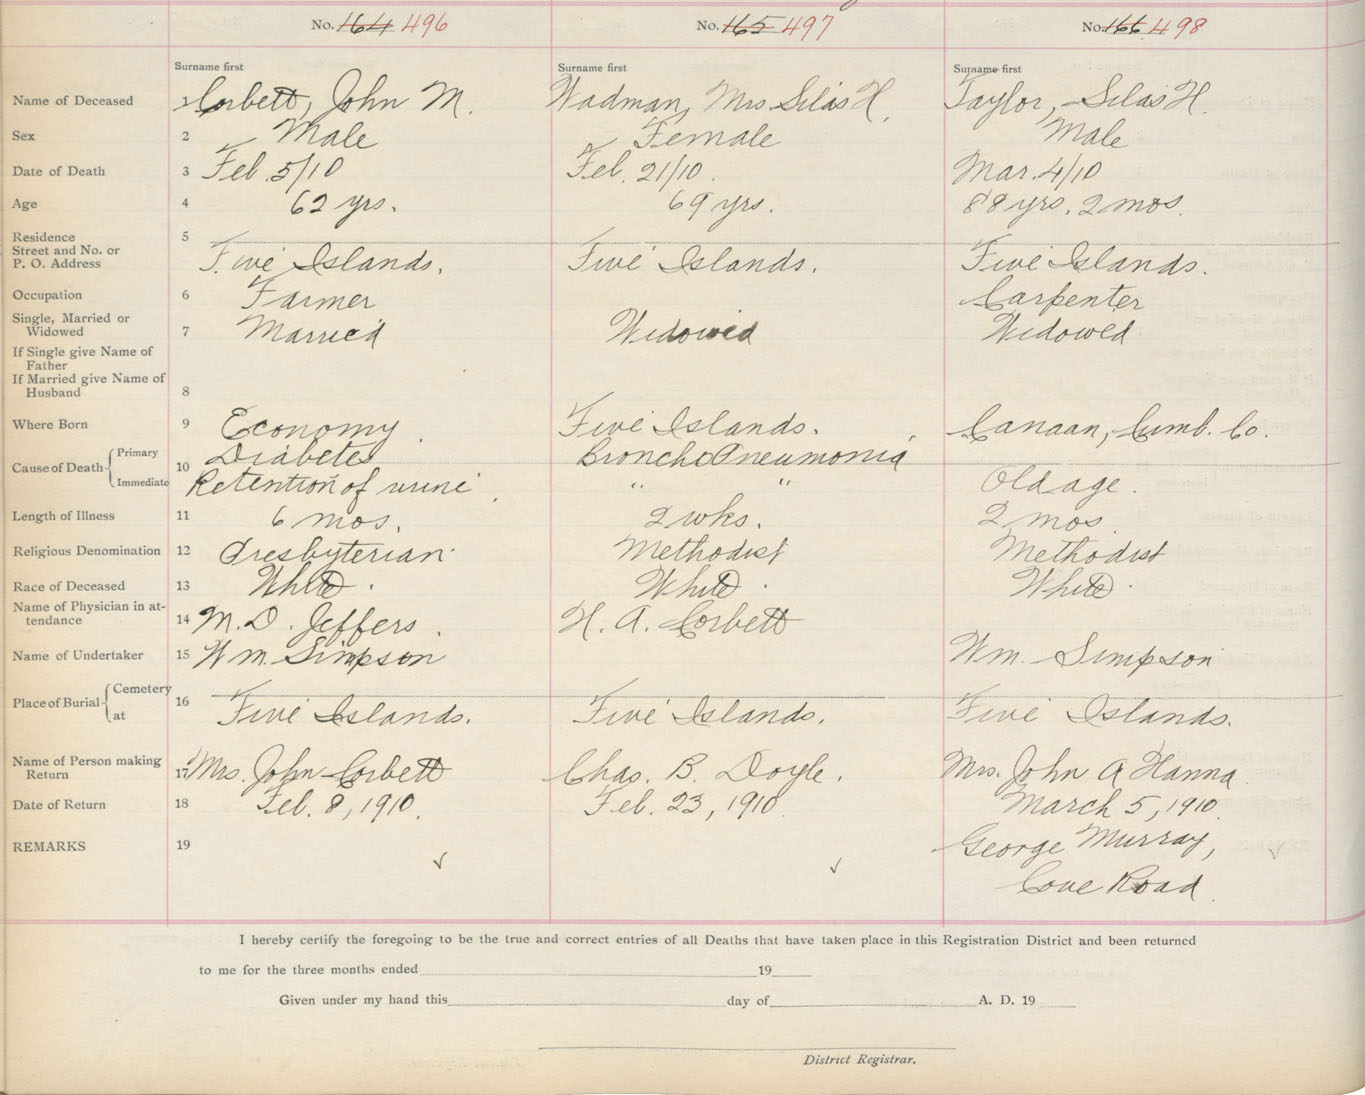 No. 164 496 No. 165 497 No. 166 498
Surname first Surname first Surname first
Name of Deceased 1 Corbett, John M. Wadman, Mrs. Silas H. Taylor, Silas H.
Sex 2 Male Female Male
Date of Death 3 Feb. 5/10 Feb. 21/10. Mar. 4/10
Age 4 62 yrs. 69 yrs. 88 yrs. 2 mos.
Residence 5
Street and No. or
P. O. Address Five Islands. Five Islands. Five Islands.
Occupation 6 Farmer Carpenter
Single, Married or
Widowed 7 Married Widowed Widowed
If Single give Name of
Father
If Married give Name of
Husband 8
Where Born 9 Economy. Five Islands. Canaan, Cumb. Co.
Cause of Death Primary 10 Diabetes Broncho Pneumonia
Immediate Retention of urine. " " Old age.
Length of Illness 11 6 mos. 2 wks. 2 mos.
Religious Denomination 12 Presbyterian Methodist Methodist
Race of Deceased 13 White. White. White.
Name of Physician in at-
tendance 14 M. D. Jeffers. H. A. Corbett
Name of Undertaker 15 Wm. Simpson Wm. Simpson
Place of Burial Cemetery 16
at Five Islands. Five Islands. Five Islands.
Name of Person making
Return 17 Mrs. John Corbett Chas. B. Doyle. Mrs. John A Hanna
Date of Return 18 Feb. 8, 1910. Feb. 23, 1910. March 5, 1910.
REMARKS 19 George Murray,
Cove Road.
I hereby certify the foregoing to be the true and correct entries of all Deaths that have taken place in this Registration District and been returned
to me for the three months ended 19
Given under my hand this day of A. D. 19
District Registrar.